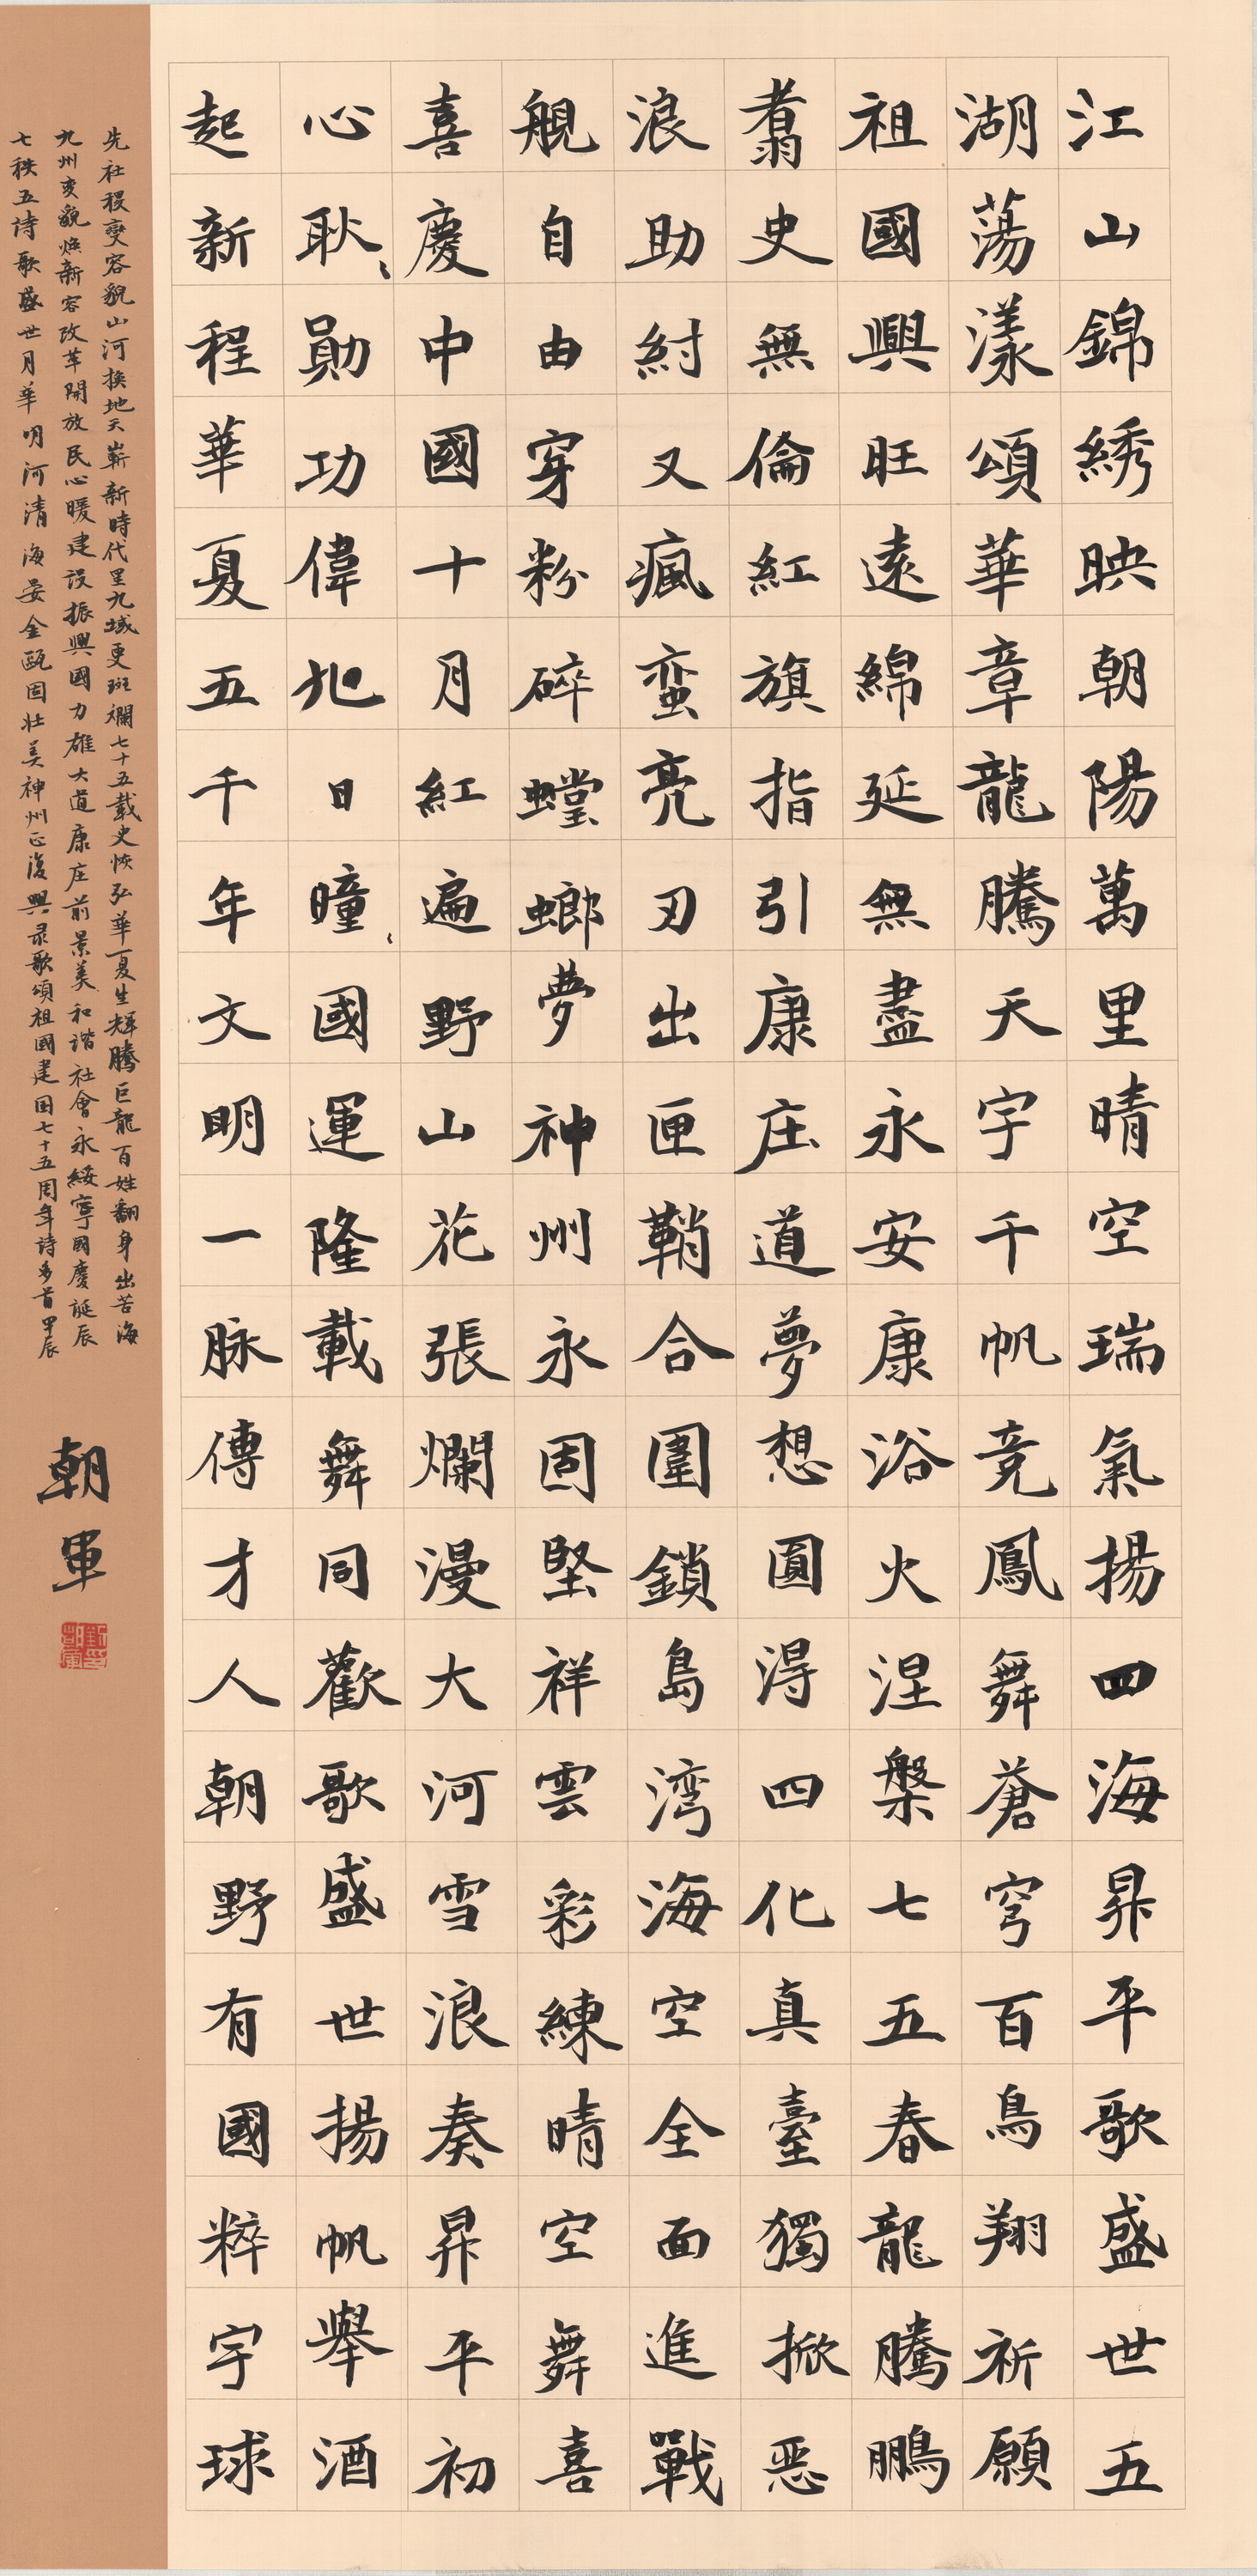 江山錦綉映朝陽萬里晴空瑞氣揚四海昇平歌盛世五
湖蕩漾頌華章龍騰天宇千帆竞鳳舞蒼穹百鳥翔祈願
祖國興旺遠綿延無盡永安康浴火涅槃七五春龍騰鵬
翥史無倫紅旗指引康庄道夢想圓淂四化真臺獨掀恶
浪助紂又瘋蛮亮刃出匣鞘合圍鎖島湾海空全面進戰
舰自由穿粉碎螳螂夢神州永固堅祥雲彩練晴空舞喜
喜慶中國十月紅遍野山花張爛漫大河雪浪奏昇平初
心耿〻勛功偉旭日曈〻國運隆載舞同歡歌盛世揚帆舉酒
起新程華夏五千年文明一脉傳才人朝野有國粹宇球
先社稷變容貌山河换地天嶄新時代里九域更斑斕七十五載史恢弘華夏生輝騰巨龍百姓翻身出苦海
九州变貌焕新容改革開放民心暖建设振興國力雄大道康庄前景美和谐社會永綏寧國慶誕辰
七秩五诗歌盛世月華明河清海晏金甌固壮美神州正復興录歌頌祖國建国七十五周年诗多首甲辰
朝軍